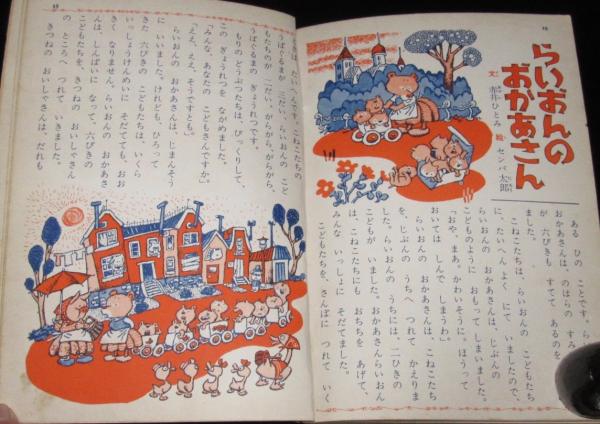 らいおんの
おかあさん
文 赤井ひとみ 絵 センバ太郎
ある ひの ことです。ら
おかあさんは、のはらの すみ
が 六ぴきも すてて あるのを
ました。
こねこたちは、らいおんの こどもたち
に、たいへん よく にて いましたので、
らいおんの おかあさんは、じぶんの
こどものように おもって しまいました。
「おや、まあ。かわいそうに。ほうって
おいては しんで しまうわ。」
らいおんの おかあさんは、こねこたち
を、じぶんの うちへ つれて かえりま
した。らいおんの うちには、二ひきの
こどもが いました。おかあさんらいおん
は、こねこたちにも おちちを あげて、
みんな いっしょに そだてました。
こどもたちを、さんぽに つれて いく
ときは、たいへんです。こねこたちの
うばぐるまが 三だい、らいおんの こど
もたちのが 一だい、がらがら、がらがら、
うばぐるまの ぎょうれつです。
もりの どうぶつたちは、びっくりして、
この ぎょうれつを ながめました。
「みんな、あなたの こどもさんですか。」
「ええ、ええ、そうですとも。」
らいおんの おかあさんは、じまんそう
に いいました。けれども、ひろって
きた 六ぴきの こどもたちは、いくら
いっしょうけんめいに そだてても、おお
きく なりません。らいおんの おかあさ
んは、しんぱいに なって、六ぴきの
こどもたちを、きつねの おいしゃさん
の ところへ つれて いきました。
きつねの おいしゃさんは、だれも